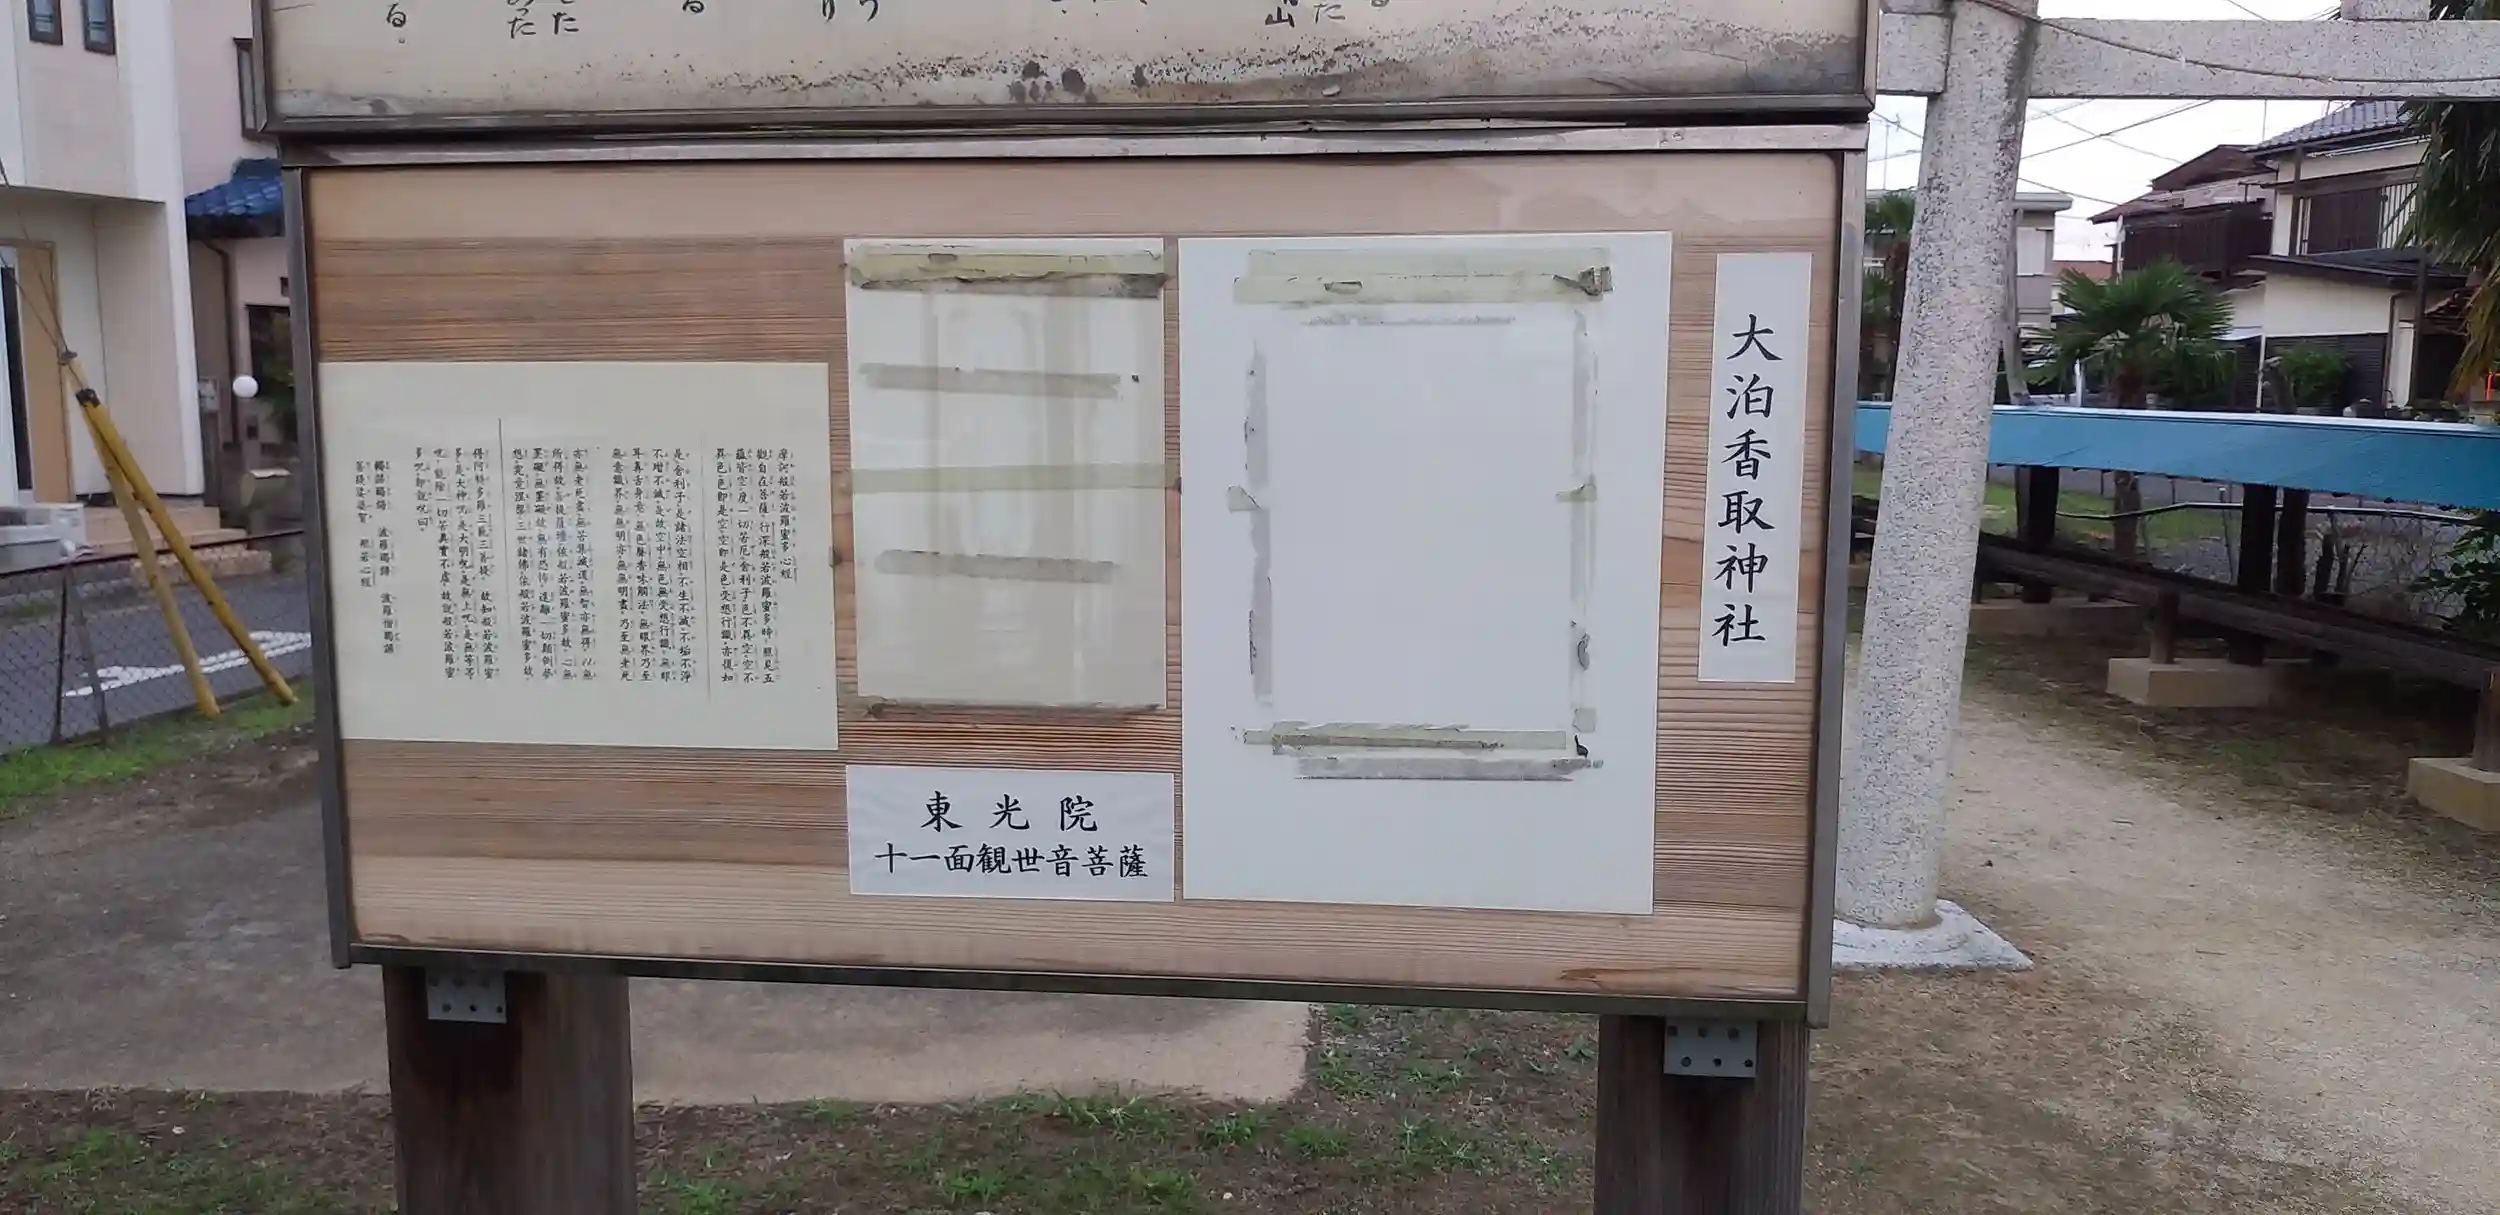 大泊香取神社
東光院
十一面観世音菩薩
摩訶般若波羅蜜多心経
観自在菩薩行深般若波羅蜜多時照見五
蘊皆空度一切苦厄舎利子色不異空空不
異色色即是空空即是色受想行識亦復如
是舎利子是諸法空相不生不滅不垢不浄
不増不減是故空中無色無受想行識無眼
耳鼻舌身意無色聲香味觸法無眼界乃至
無意識界無無明亦無無明盡乃至無老死
亦無老死盡無苦集滅道無智亦無得以無
所得故菩提薩埵依般若波羅蜜多故心無
罣礙無罣礙故無有恐怖遠離一切顛倒夢
想究竟涅槃三世諸佛依般若波羅蜜多故
得阿耨多羅三藐三菩提故知般若波羅蜜
多是大神呪是大明呪是無上呪是無等等
呪能除一切苦真實不虚故説般若波羅蜜
多呪即説呪曰
羯諦羯諦 波羅羯諦 波羅僧羯諦
菩提薩婆賀 般若心経